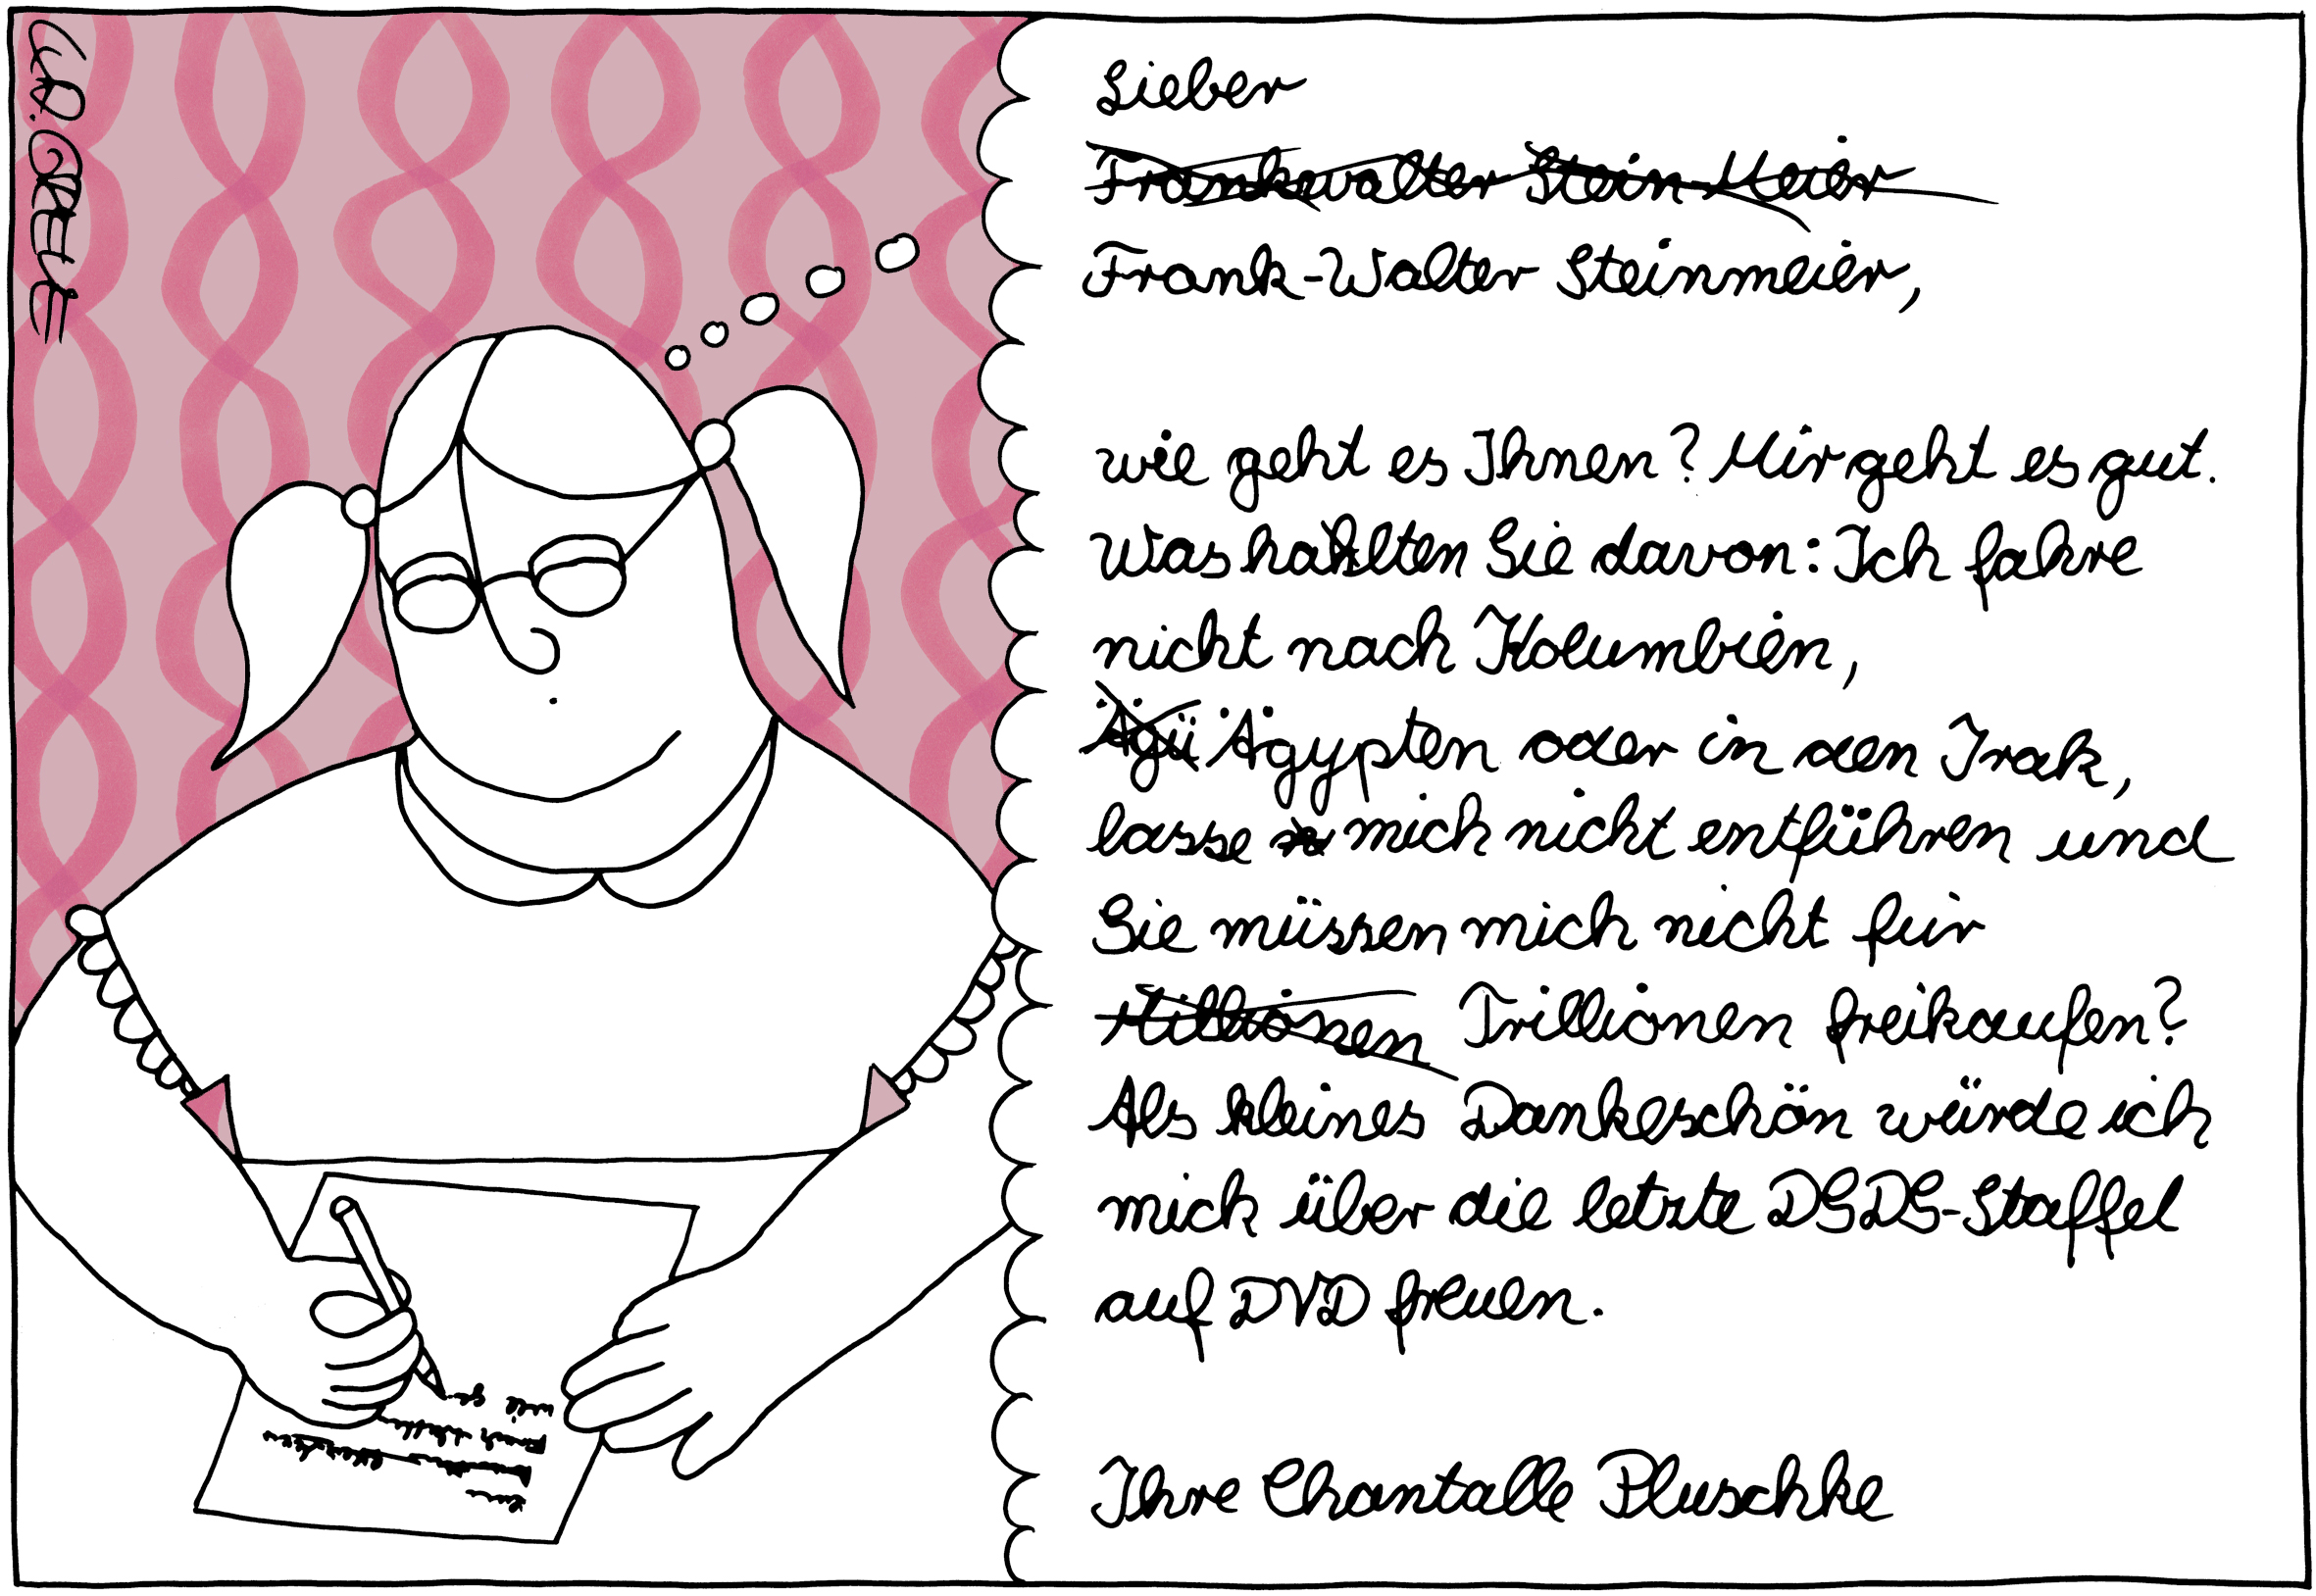 Lieber
Frankwalter Stein-Meier
Frank-Walter Steinmeier,
wie geht es Ihnen? Mir geht es gut.
Was halten Sie davon: Ich fahre
nicht nach Kolumbien,
Ägü Ägypten oder in den Irak,
lasse mich nicht entführen und
Sie müssen mich nicht für
Millionen Trillionen freikaufen?
Als kleines Dankeschön würde ich
mich über die letzte DSDS-Staffel
auf DVD freuen.
Ihre Chantalle Pluschke